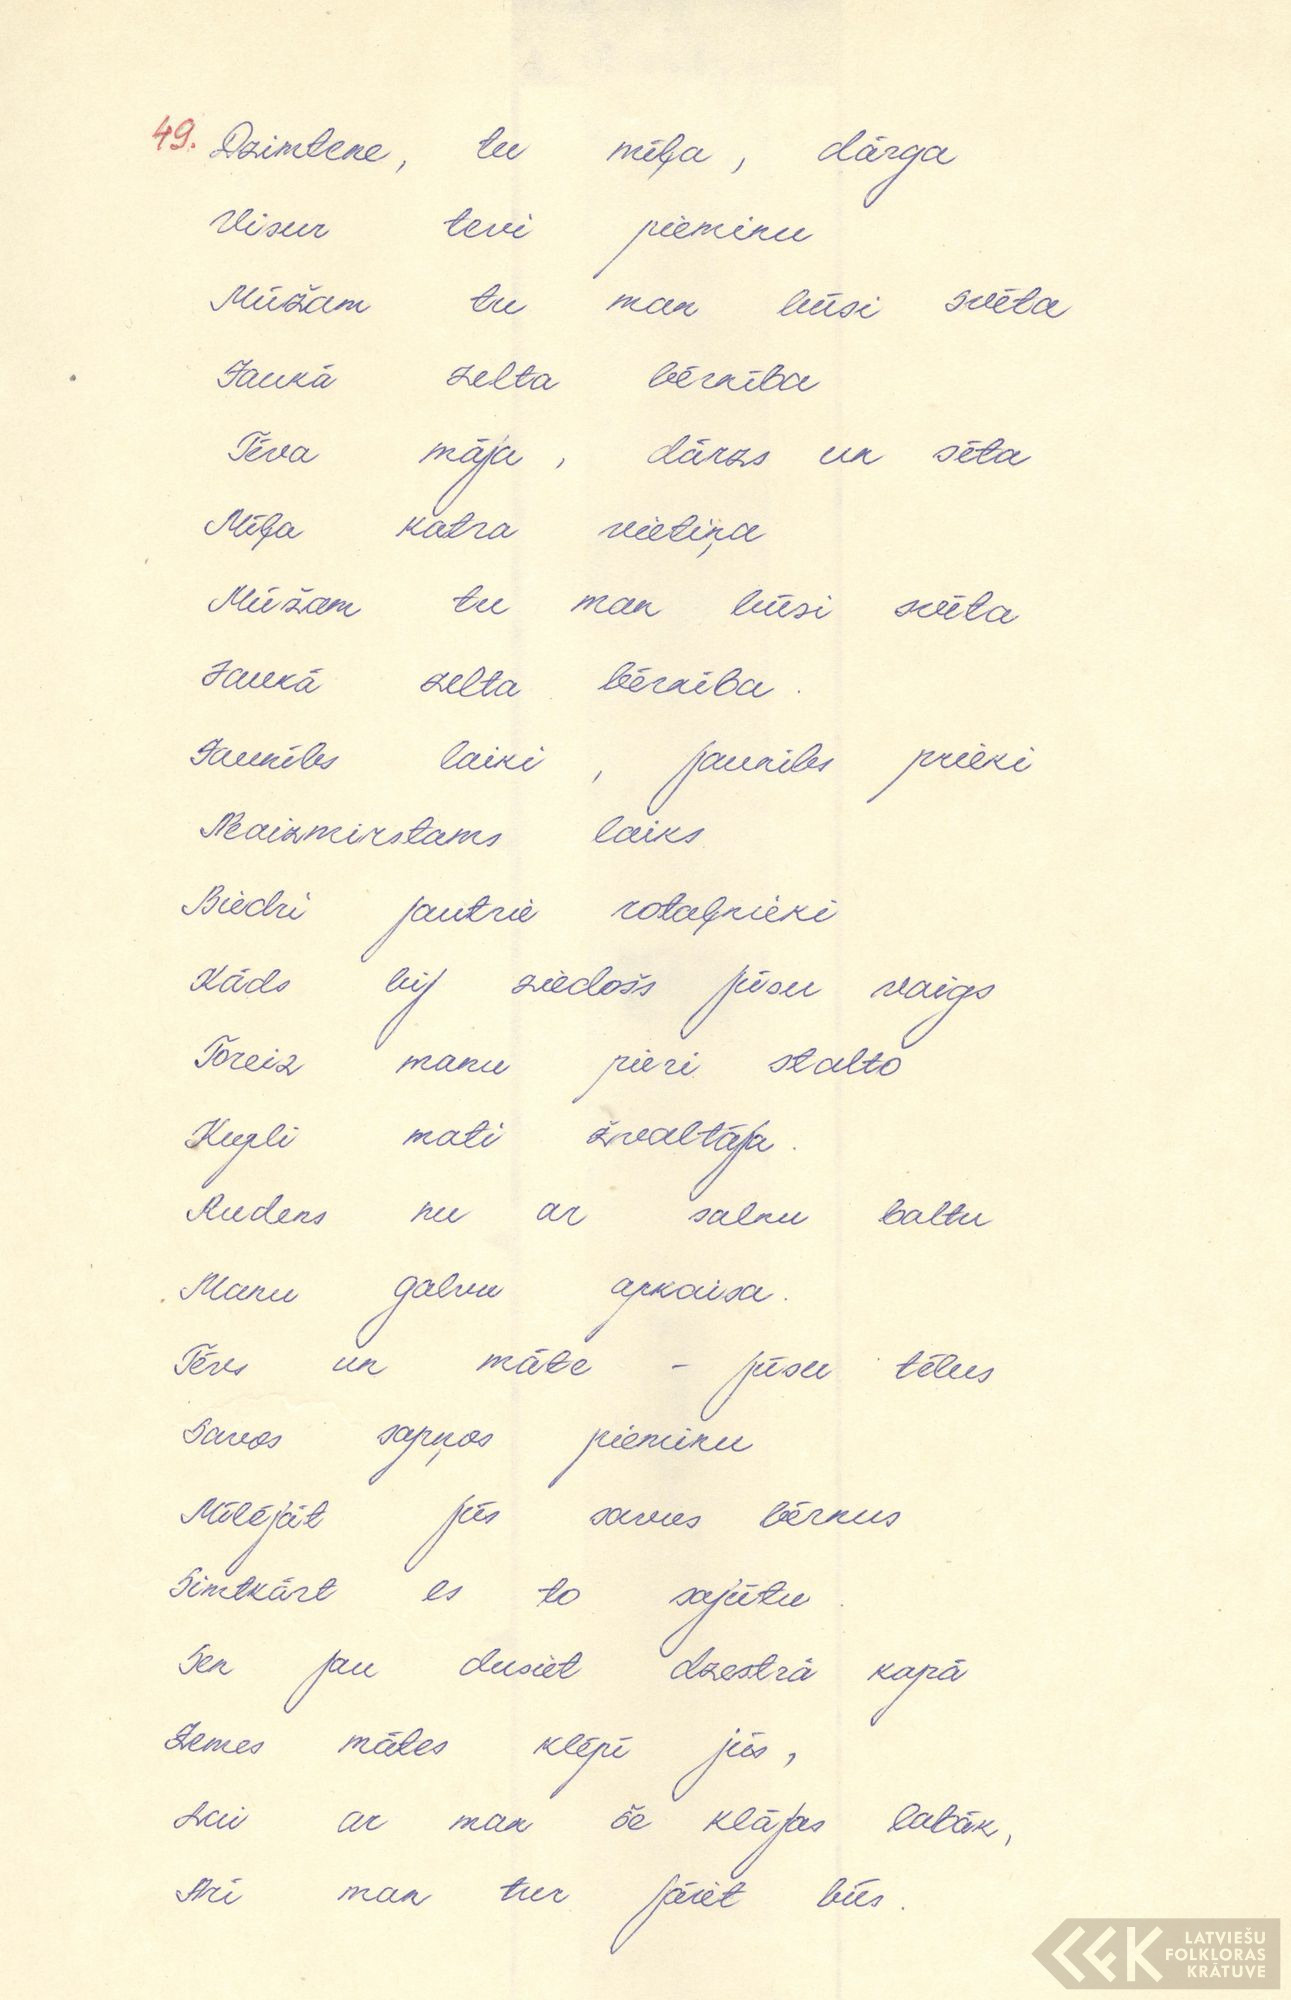 49. Dzimtene, tu mīļa, dārga
Visur tevi pieminu
Mūžam tu man būsi svēta
Jaukā zelta bērnība
Tēva māja, dārzs un sēta
Mīļa katra vietiņa
Mūžam tu man būsi svēta
Jaukā zelta bērnība.
Jaunības laiki, jaunības prieki
Neaizmirstams laiks
Biedri jautrie rotaļnieki
Kāds bij ziedošs jūsu vaigs
Toreiz manu pieri stalto
Kupli mati žvaltāja.
Rudens nu ar salnu baltu
Manu galvu apkaisa.
Tēvs un māte - jūsu tēlus
Savos sapņos pieminu
Mīlējāt jūs savus bērnus
Simtkārt es to sajūtu.
Sen jau dusiet dzestrā kapā
Zemes mātes klēpī jūs,
Lai ar man še klājas labāk,
Arī man tur jāiet būs.
LATVIEŠU
FOLKLORAS
KRĀTUVE